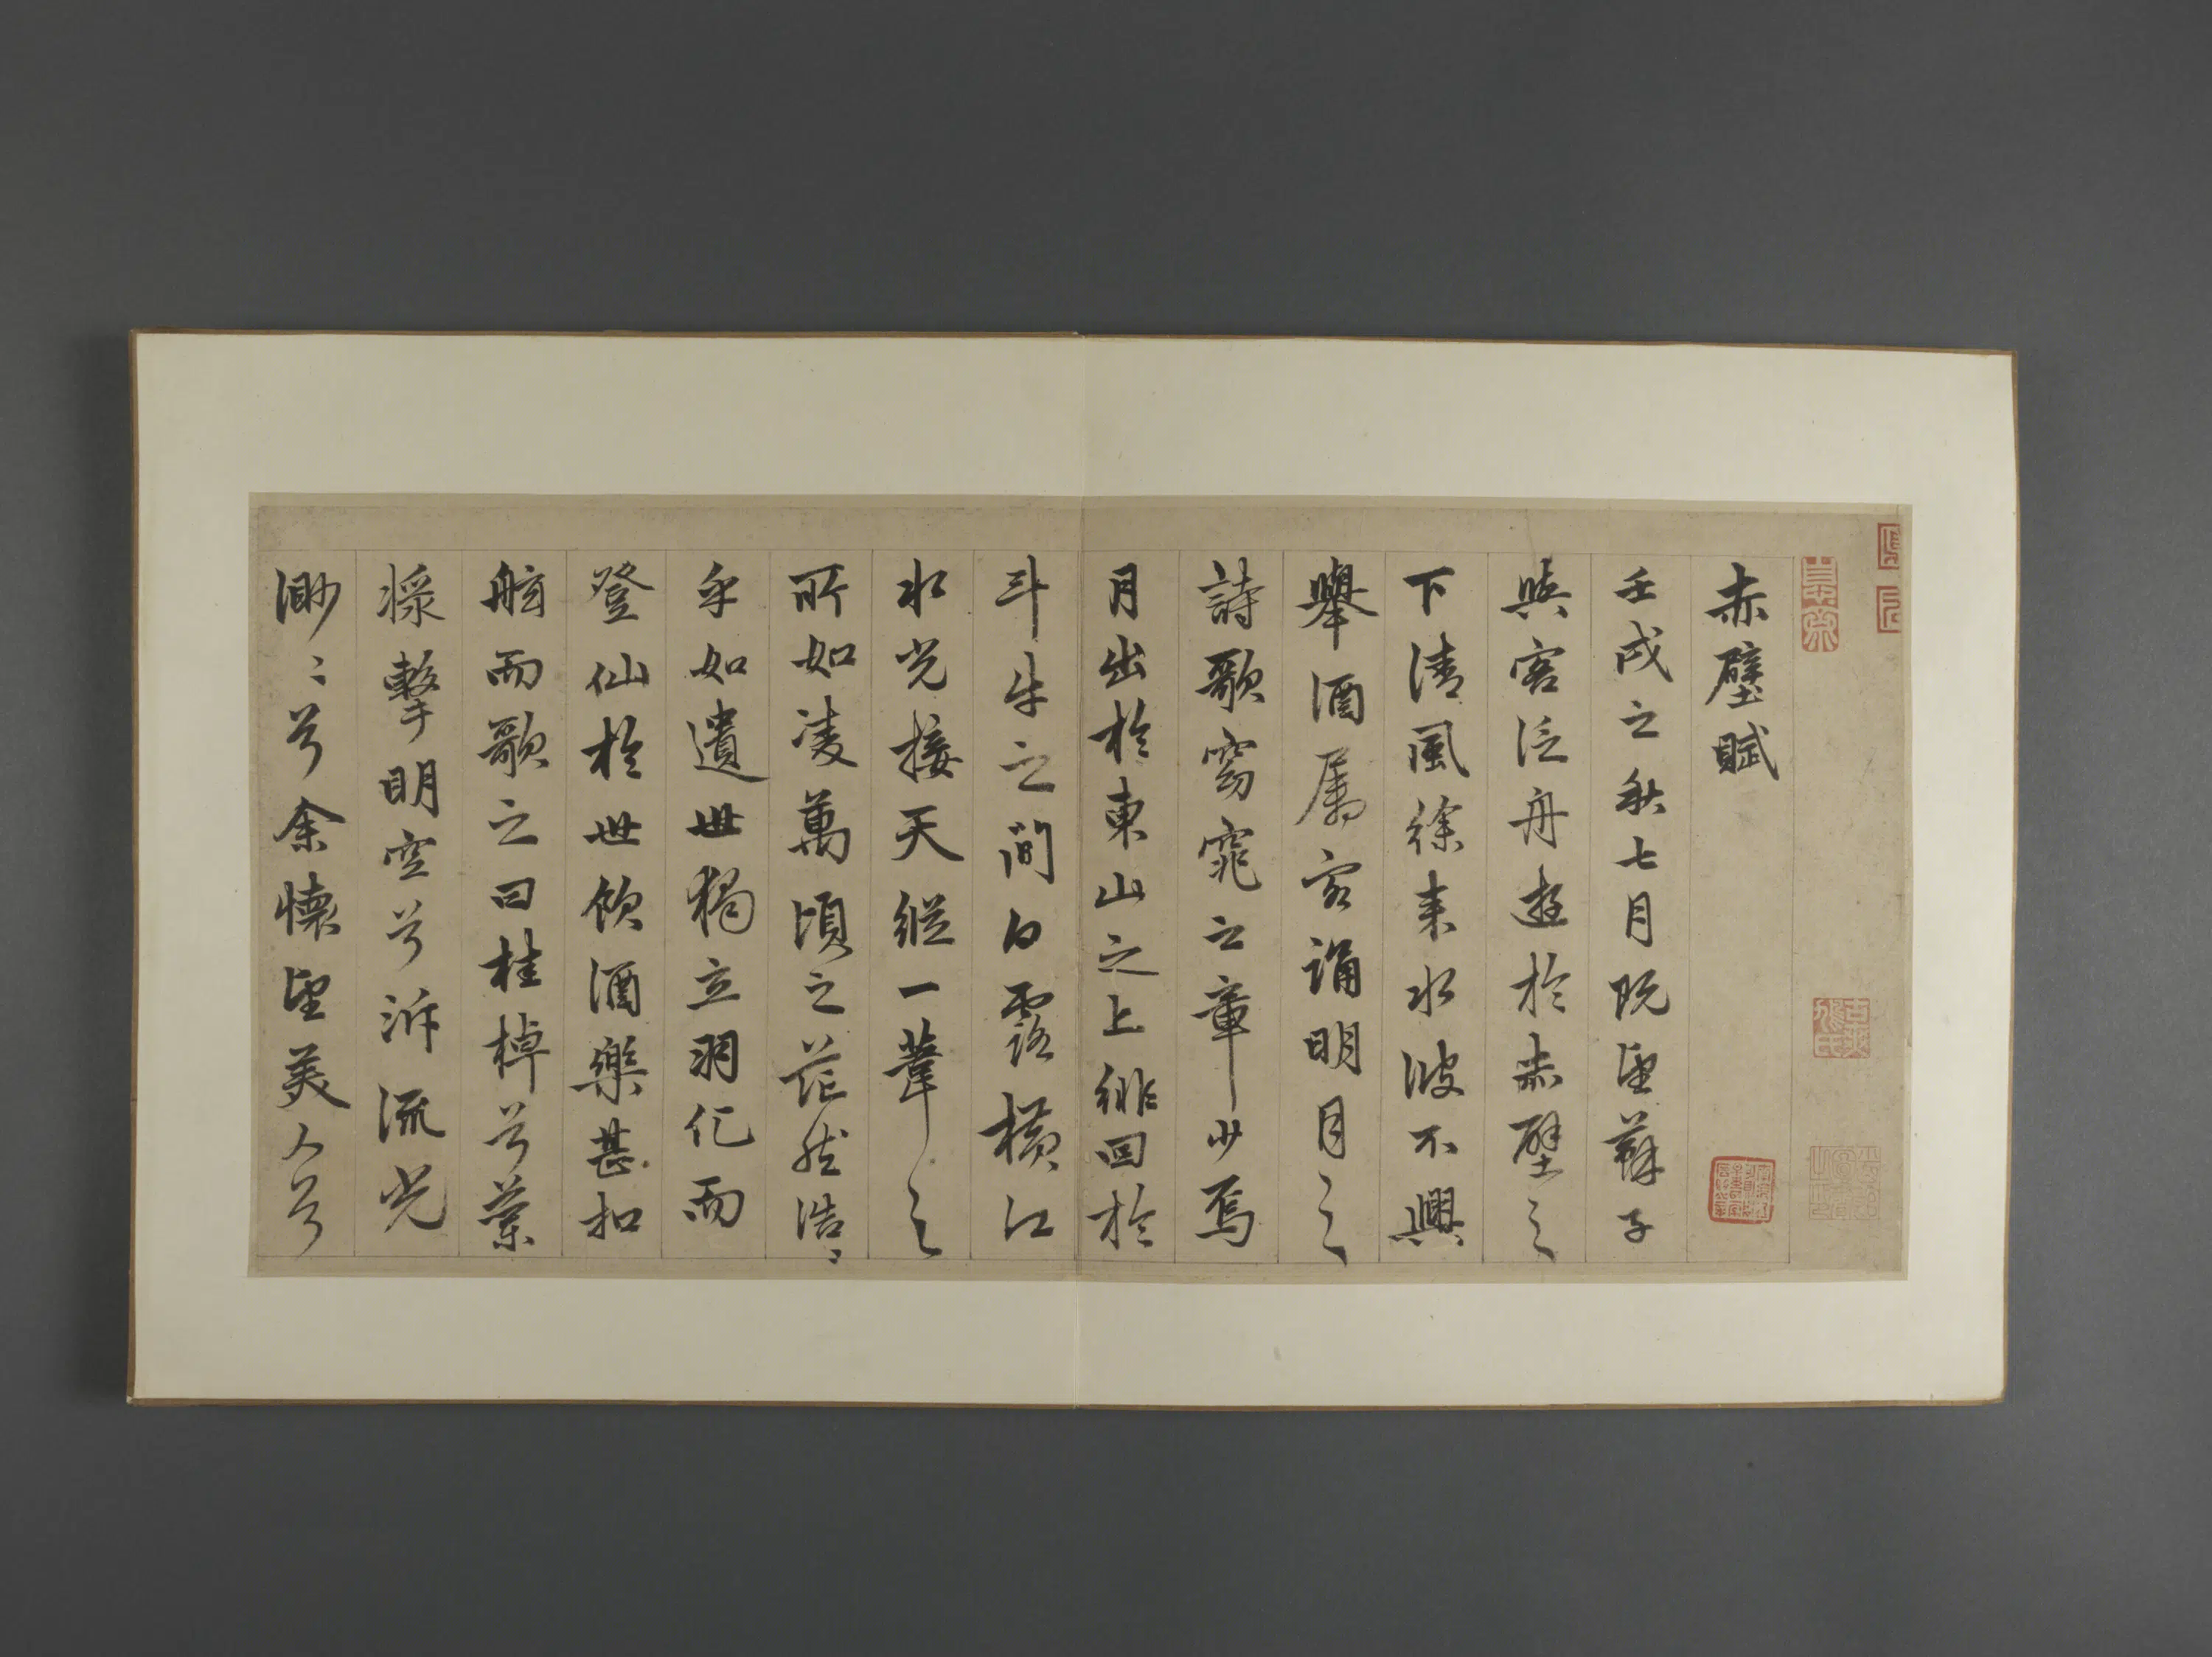 赤壁賦
壬戌之秋七月既望蘇子
與客泛舟遊於赤壁之
下清風徐来水波不興
舉酒属客誦明月之
詩歌窈窕之章少焉
月出於東山之上徘回於
斗牛之間白露横江
水光接天縱一葦之
所如凌萬頃之茫然浩〻
乎如遺世獨立羽化而
登仙於世飲酒樂甚扣
舷而歌之曰桂棹兮蘭
槳擊明空兮泝流光
渺〻兮余懷望美人兮